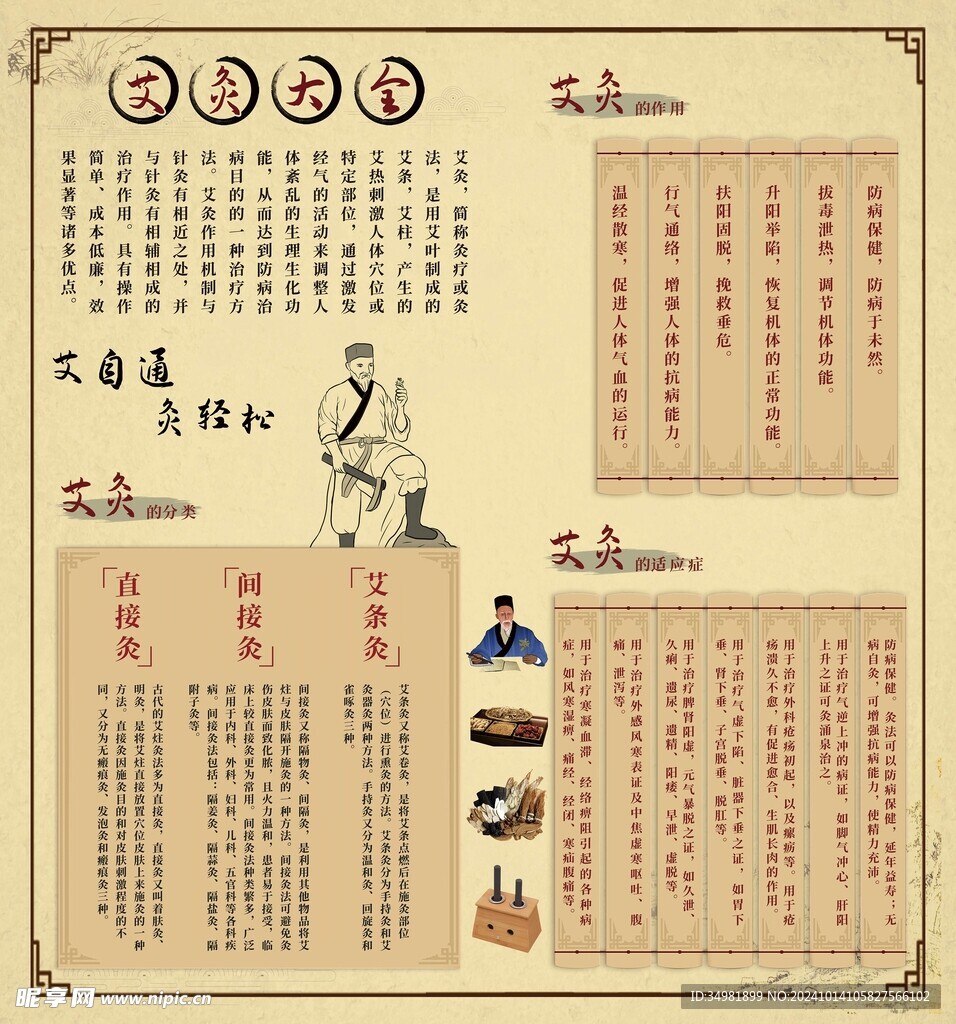 艾灸大全
艾灸，简称灸疗或灸
法，是用艾叶制成的
艾条，艾柱，产生的
艾热刺激人体穴位或
特定部位，通过激发
经气的活动来调整人
体紊乱的生理生化功
能，从而达到防病治
病目的的一种治疗方
法。艾灸作用机制与
针灸有相近之处，并
与针灸有相辅相成的
治疗作用。具有操作
简单、成本低廉，效
果显著等诸多优点。
艾自通
灸轻松
艾灸的分类
「艾条灸」
艾条灸又称艾卷灸，是将艾条点燃后在施灸部位
（穴位）进行熏灸的方法。艾条灸分为手持灸和艾
灸器灸两种方法。手持灸又分为温和灸、回旋灸和
雀啄灸三种。
「间接灸」
间接灸又称隔物灸、间隔灸，是利用其他物品将艾
炷与皮肤隔开施灸的一种方法。间接灸法可避免灸
伤皮肤而致化脓，且火力温和，患者易于接受，临
床上较直接灸更为常用。间接灸法种类繁多，广泛
应用于内科、外科、妇科、儿科、五官科等各科疾
病。间接灸法包括：隔姜灸、隔蒜灸、隔盐灸、隔
附子灸等。
「直接灸」
古代的艾炷灸法多为直接灸，直接灸又叫着肤灸、
明灸，是将艾炷直接放置穴位皮肤上来施灸的一种
方法。直接灸因施灸目的和对皮肤刺激程度的不
同，又分为无瘢痕灸、发泡灸和瘢痕灸三种。
艾灸的作用
防病保健，防病于未然。
拔毒泄热，调节机体功能。
升阳举陷，恢复机体的正常功能。
扶阳固脱，挽救垂危。
行气通络，增强人体的抗病能力。
温经散寒，促进人体气血的运行。
艾灸的适应症
防病保健。灸法可以防病保健，延年益寿；无
病自灸，可增强抗病能力，使精力充沛。
用于治疗气逆上冲的病证，如脚气冲心、肝阳
上升之证可灸涌泉治之。
用于治疗外科疮疡初起，以及瘰疬等。用于疮
疡溃久不愈，有促进愈合、生肌长肉的作用。
用于治疗气虚下陷、脏器下垂之证，如胃下
垂、肾下垂、子宫脱垂、脱肛等。
用于治疗脾肾阳虚，元气暴脱之证，如久泄、
久痢、遗尿、遗精、阳痿、早泄、虚脱等。
用于治疗外感风寒表证及中焦虚寒呕吐、腹
痛、泄泻等。
用于治疗寒凝血滞、经络痹阻引起的各种病
症，如风寒湿痹、痛经、经闭、寒疝腹痛等。
昵享网 www.nipic.cn
ID:34981899 NO:20241014105827566102